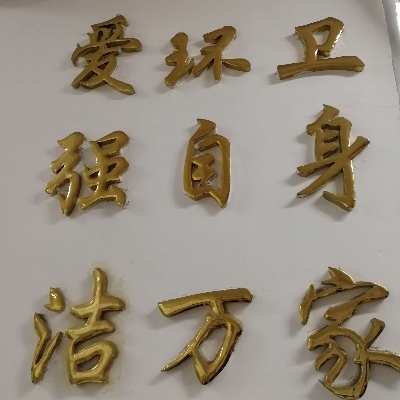 爱环卫
强自身
洁万家